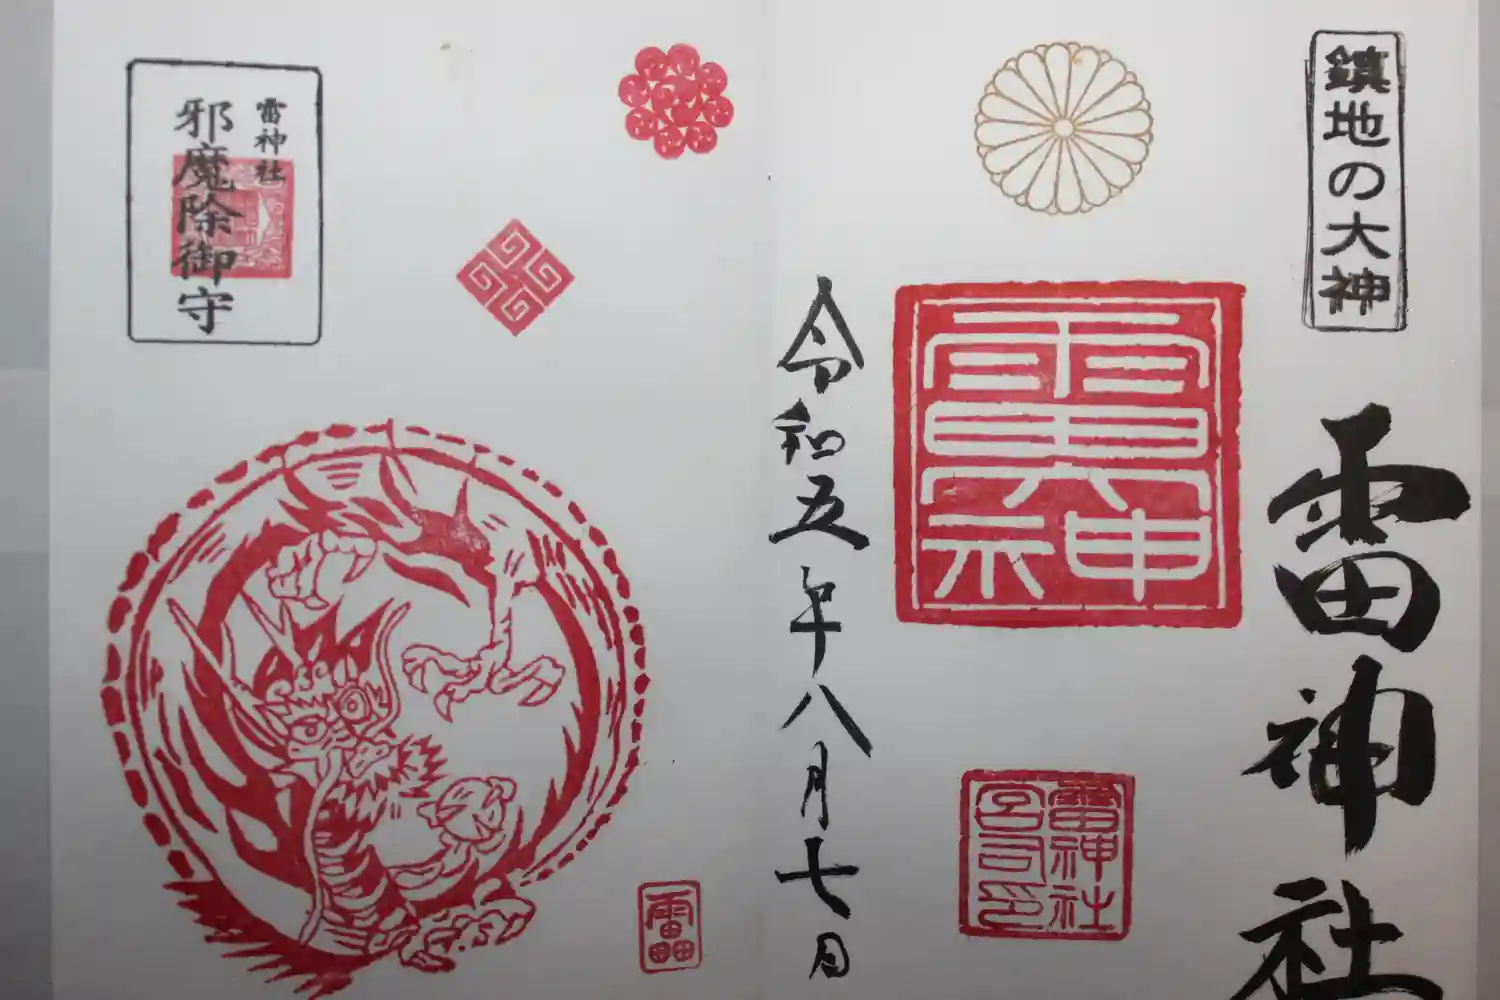 鎮地の大神
雷神社
雷神社
宮司印
令和五年八月七日
雷神社
邪魔除御守